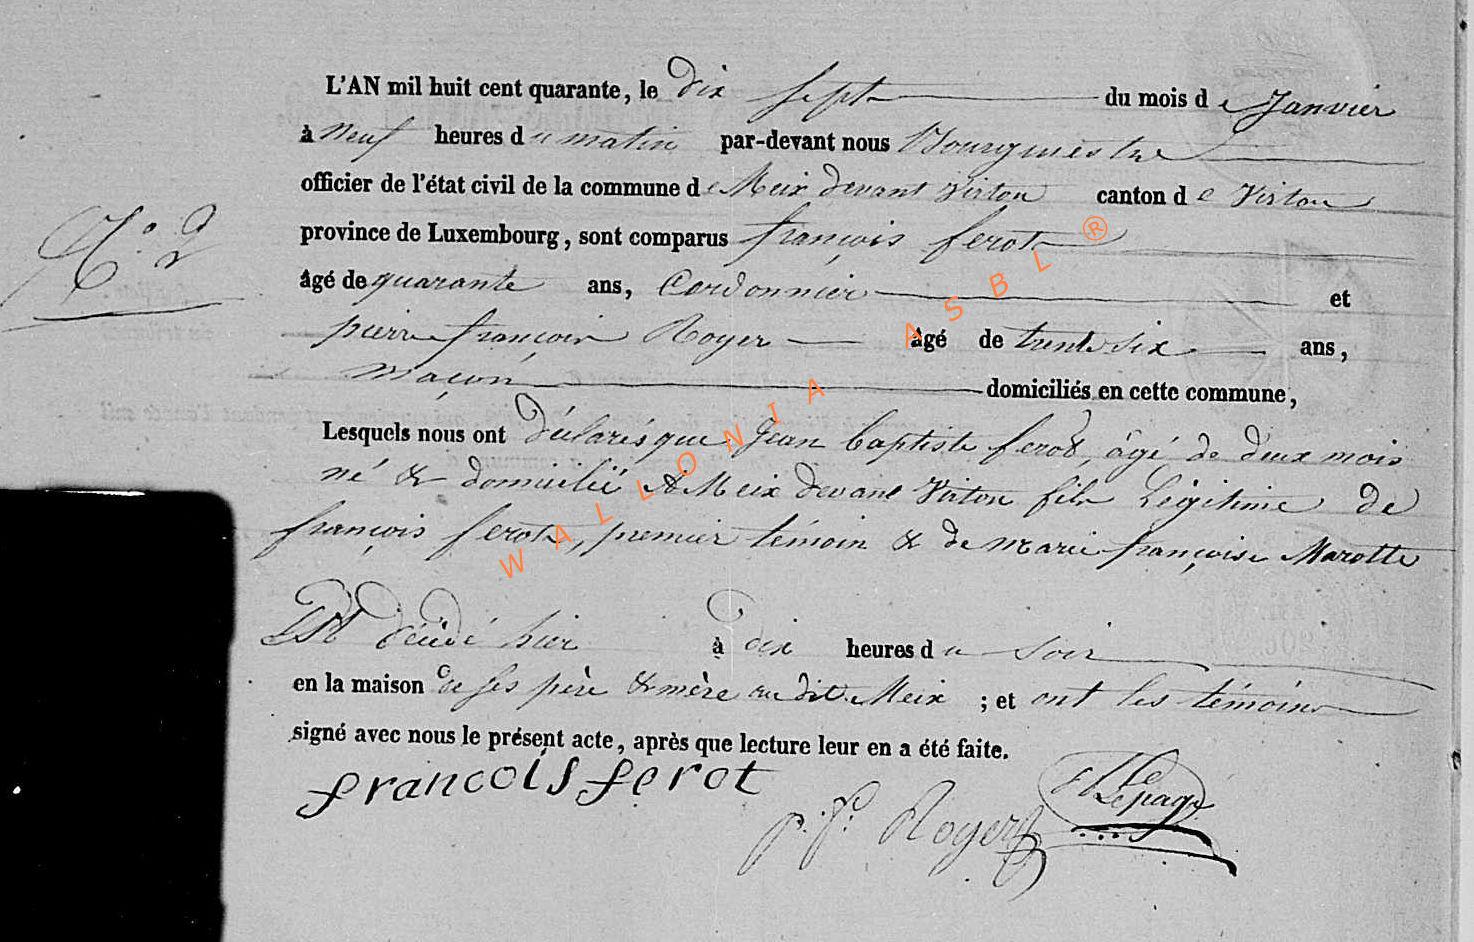 L'AN mil huit cent quarante, le dix sept du mois de Janvier
à neuf heures du matin par-devant nous Bourgmestre
officier de l'état civil de la commune de Meix devant Virton canton de Virton
N.° 2
province de Luxembourg, sont comparus françois ferot
âgé de quarante ans, Cordonnier et
pierre françois Royer âgé de trente six ans,
maçon domiciliés en cette commune,
Lesquels nous ont déclarés que Jean baptiste ferot, âgé de deux mois
né & domicilié à Meix devant Virton fils Légitime de
françois ferot, premier témoin & de marie françoise Marotte
Est décédé hier à dix heures du soir
en la maison de ses père & mère au dit Meix ; et ont les témoins
signé avec nous le présent acte, après que lecture leur en a été faite.
francois ferot
p. f. Royer
Lepage
WALLONIA ASBL ®